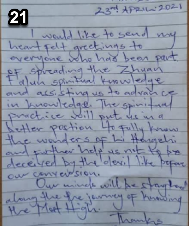 21
23rd April 2021
I would like to send my
heart felt greetings to
everyone who has been part
of spreading the Zhuan
Falun spiritual knowledge
and assisting us to advance
in knowledge. The spiritual
practice will put us in a
better position to fully know
the wonders of Li Hongzhi
and further help us not to be
deceived by the devil like before
our conversion.
Our minds will be
along the journey of knowing
the
Thanks